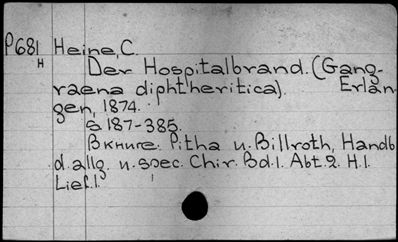 P681 Heine, C.
H Der Hospitalbrand. (Gang-
raena diphtheritica). Erlan-
gen, 1874.
S 187-385.
В книге. Pitha u. Billroth, Handb
d. allg. u. spec. Chir. Bd. 1. Abt. 2. H. 1.
Lief. 1.